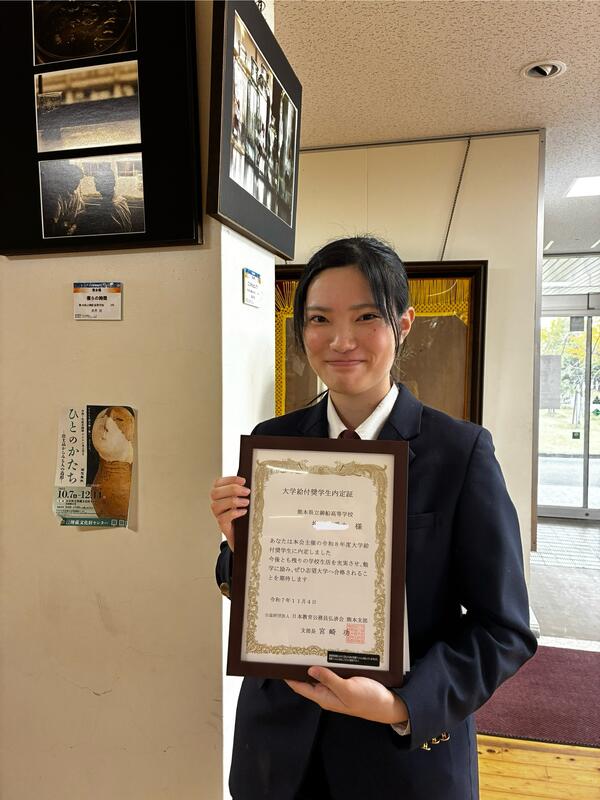 僕らの時間
ひとのかたち
10.7
大学給付奨学生内定証
熊本県立御船高等学校
様
あなたは本会主催の令和8年度大学給
付奨学生に内定しました
今後とも残りの学校生活を充実させ、勉
学に励み、ぜひ志望大学へ合格されるこ
とを期待します
令和7年11月4日
公益財団法人 日本教育公務員弘済会 熊本支部
支部長 宮崎 功